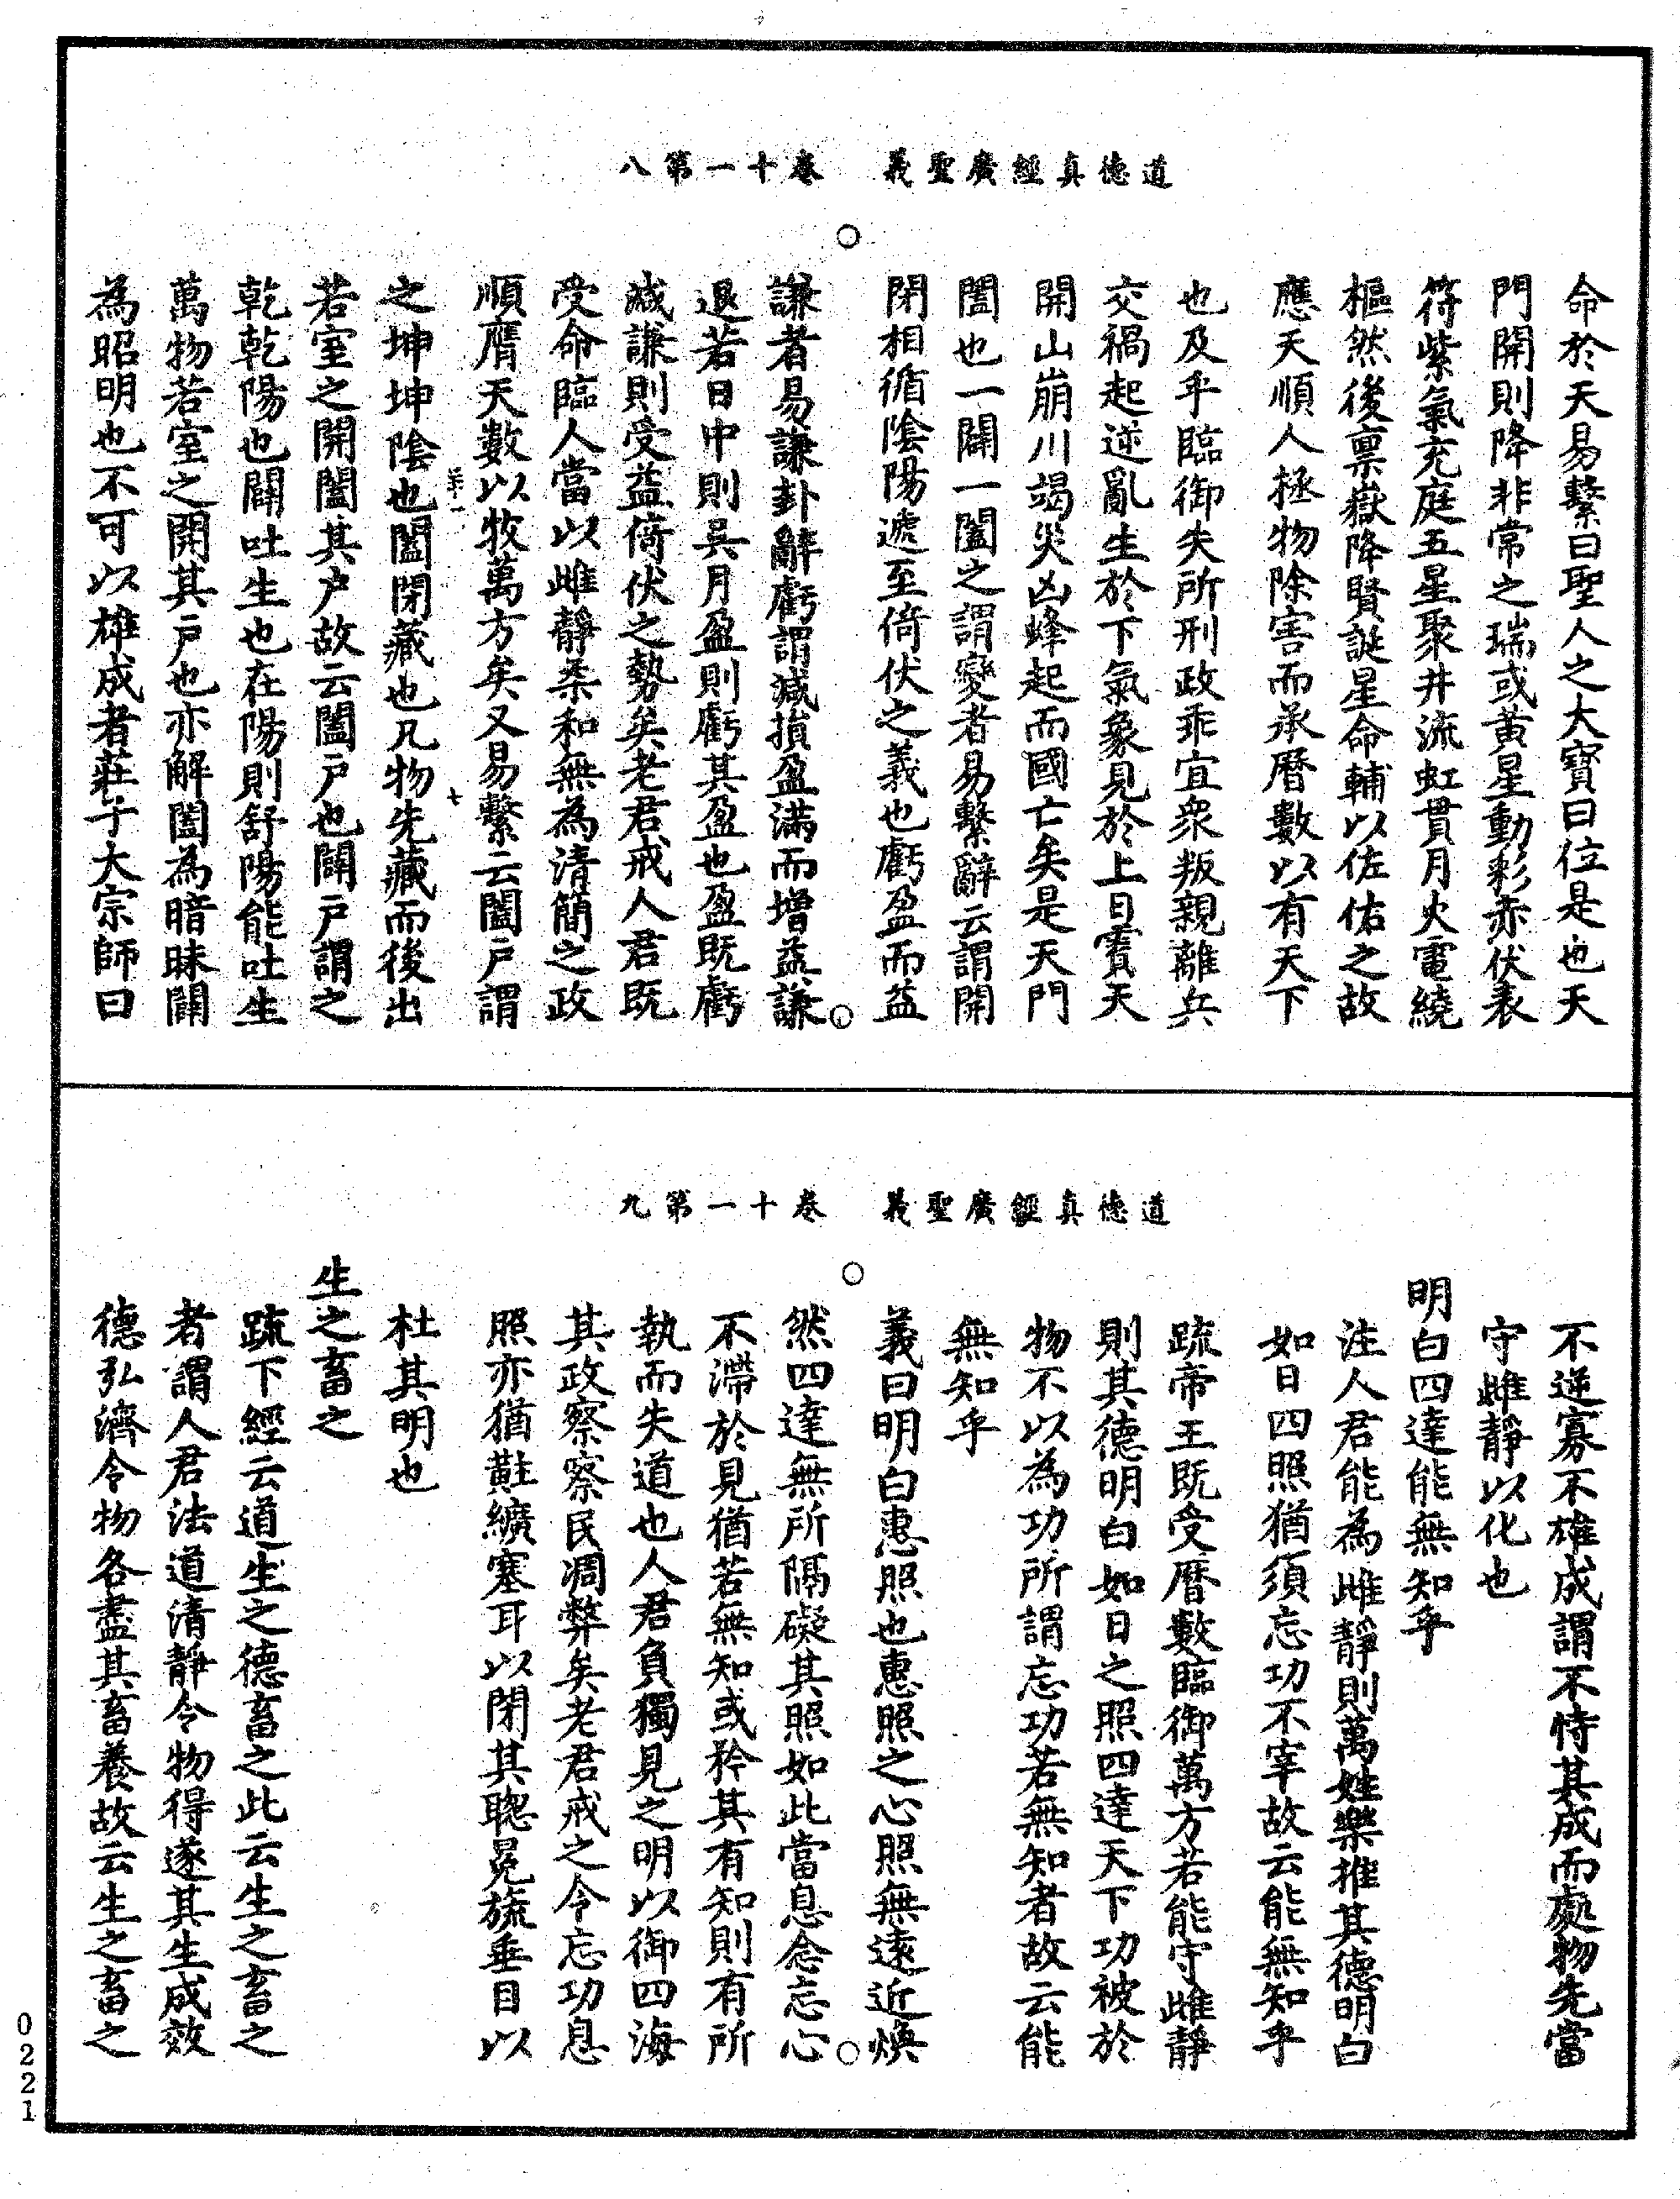 道德真經廣聖義　卷十一第八
命於天易繫曰聖人之大寳曰位是也天
門開則降非常之瑞或黃星動彩赤伏表
符紫氣充庭五星聚井流虹貫月火電繞
樞然後禀嶽降賢誕星命輔以佐佑之故
應天順人拯物除害而承曆數以有天下
也及乎臨御失所刑政乖宜衆叛親離兵
交禍起逆亂生於下氣象見於上日霣天
開山崩川竭災凶蜂起而國亡矣是天門
闔也一闢一闔之謂變者易繫辭云謂開
閉相循陰陽遞至倚伏之義也虧盈而益
謙者易謙卦辭虧謂減損盈滿而增益謙
退若日中則昃月盈則虧其盈也盈既虧
減謙則受益倚伏之勢矣老君戒人君既
受命臨人當以雌靜柔和無為清簡之政
順膺天數以牧萬方矣又易繫云闔戶謂
之坤坤陰也闔閉藏也凡物先藏而後出
若室之開闔其户故云闔戶也闢戶謂之
乾乾陽也闢吐生也在陽則舒陽能吐生
萬物若室之開其戶也亦解闔為暗昧闢
為昭明也不可以雄成者莊子大宗師曰
道德真經廣聖義　卷十一第九
不逆寡不雄成謂不恃其成而處物先當
守雌靜以化也
明白四達能無知乎
注人君能為雌靜則萬姓樂推其德明白
如日四照猶須忘功不宰故云能無知乎
疏帝王既受曆數臨御萬方若能守雌靜
則其德明白如日之照四達天下功被於
物不以為功所謂忘功若無知者故云能
無知乎
義曰明白惠照也惠照之心照無遠近煥
然四達無所隔礙其照如此當息念忘心
不滯於見猶若無知或矜其有知則有所
執而失道也人君負獨見之明以御四海
其政察察民凋弊矣老君戒之令忘功息
照亦猶黈纊塞耳以閉其聦冕旒垂目以
杜其明也
生之畜之
疏下經云道生之德畜之此云生之畜之
者謂人君法道清靜令物得遂其生成效
德弘濟令物各盡其畜養故云生之畜之
0221